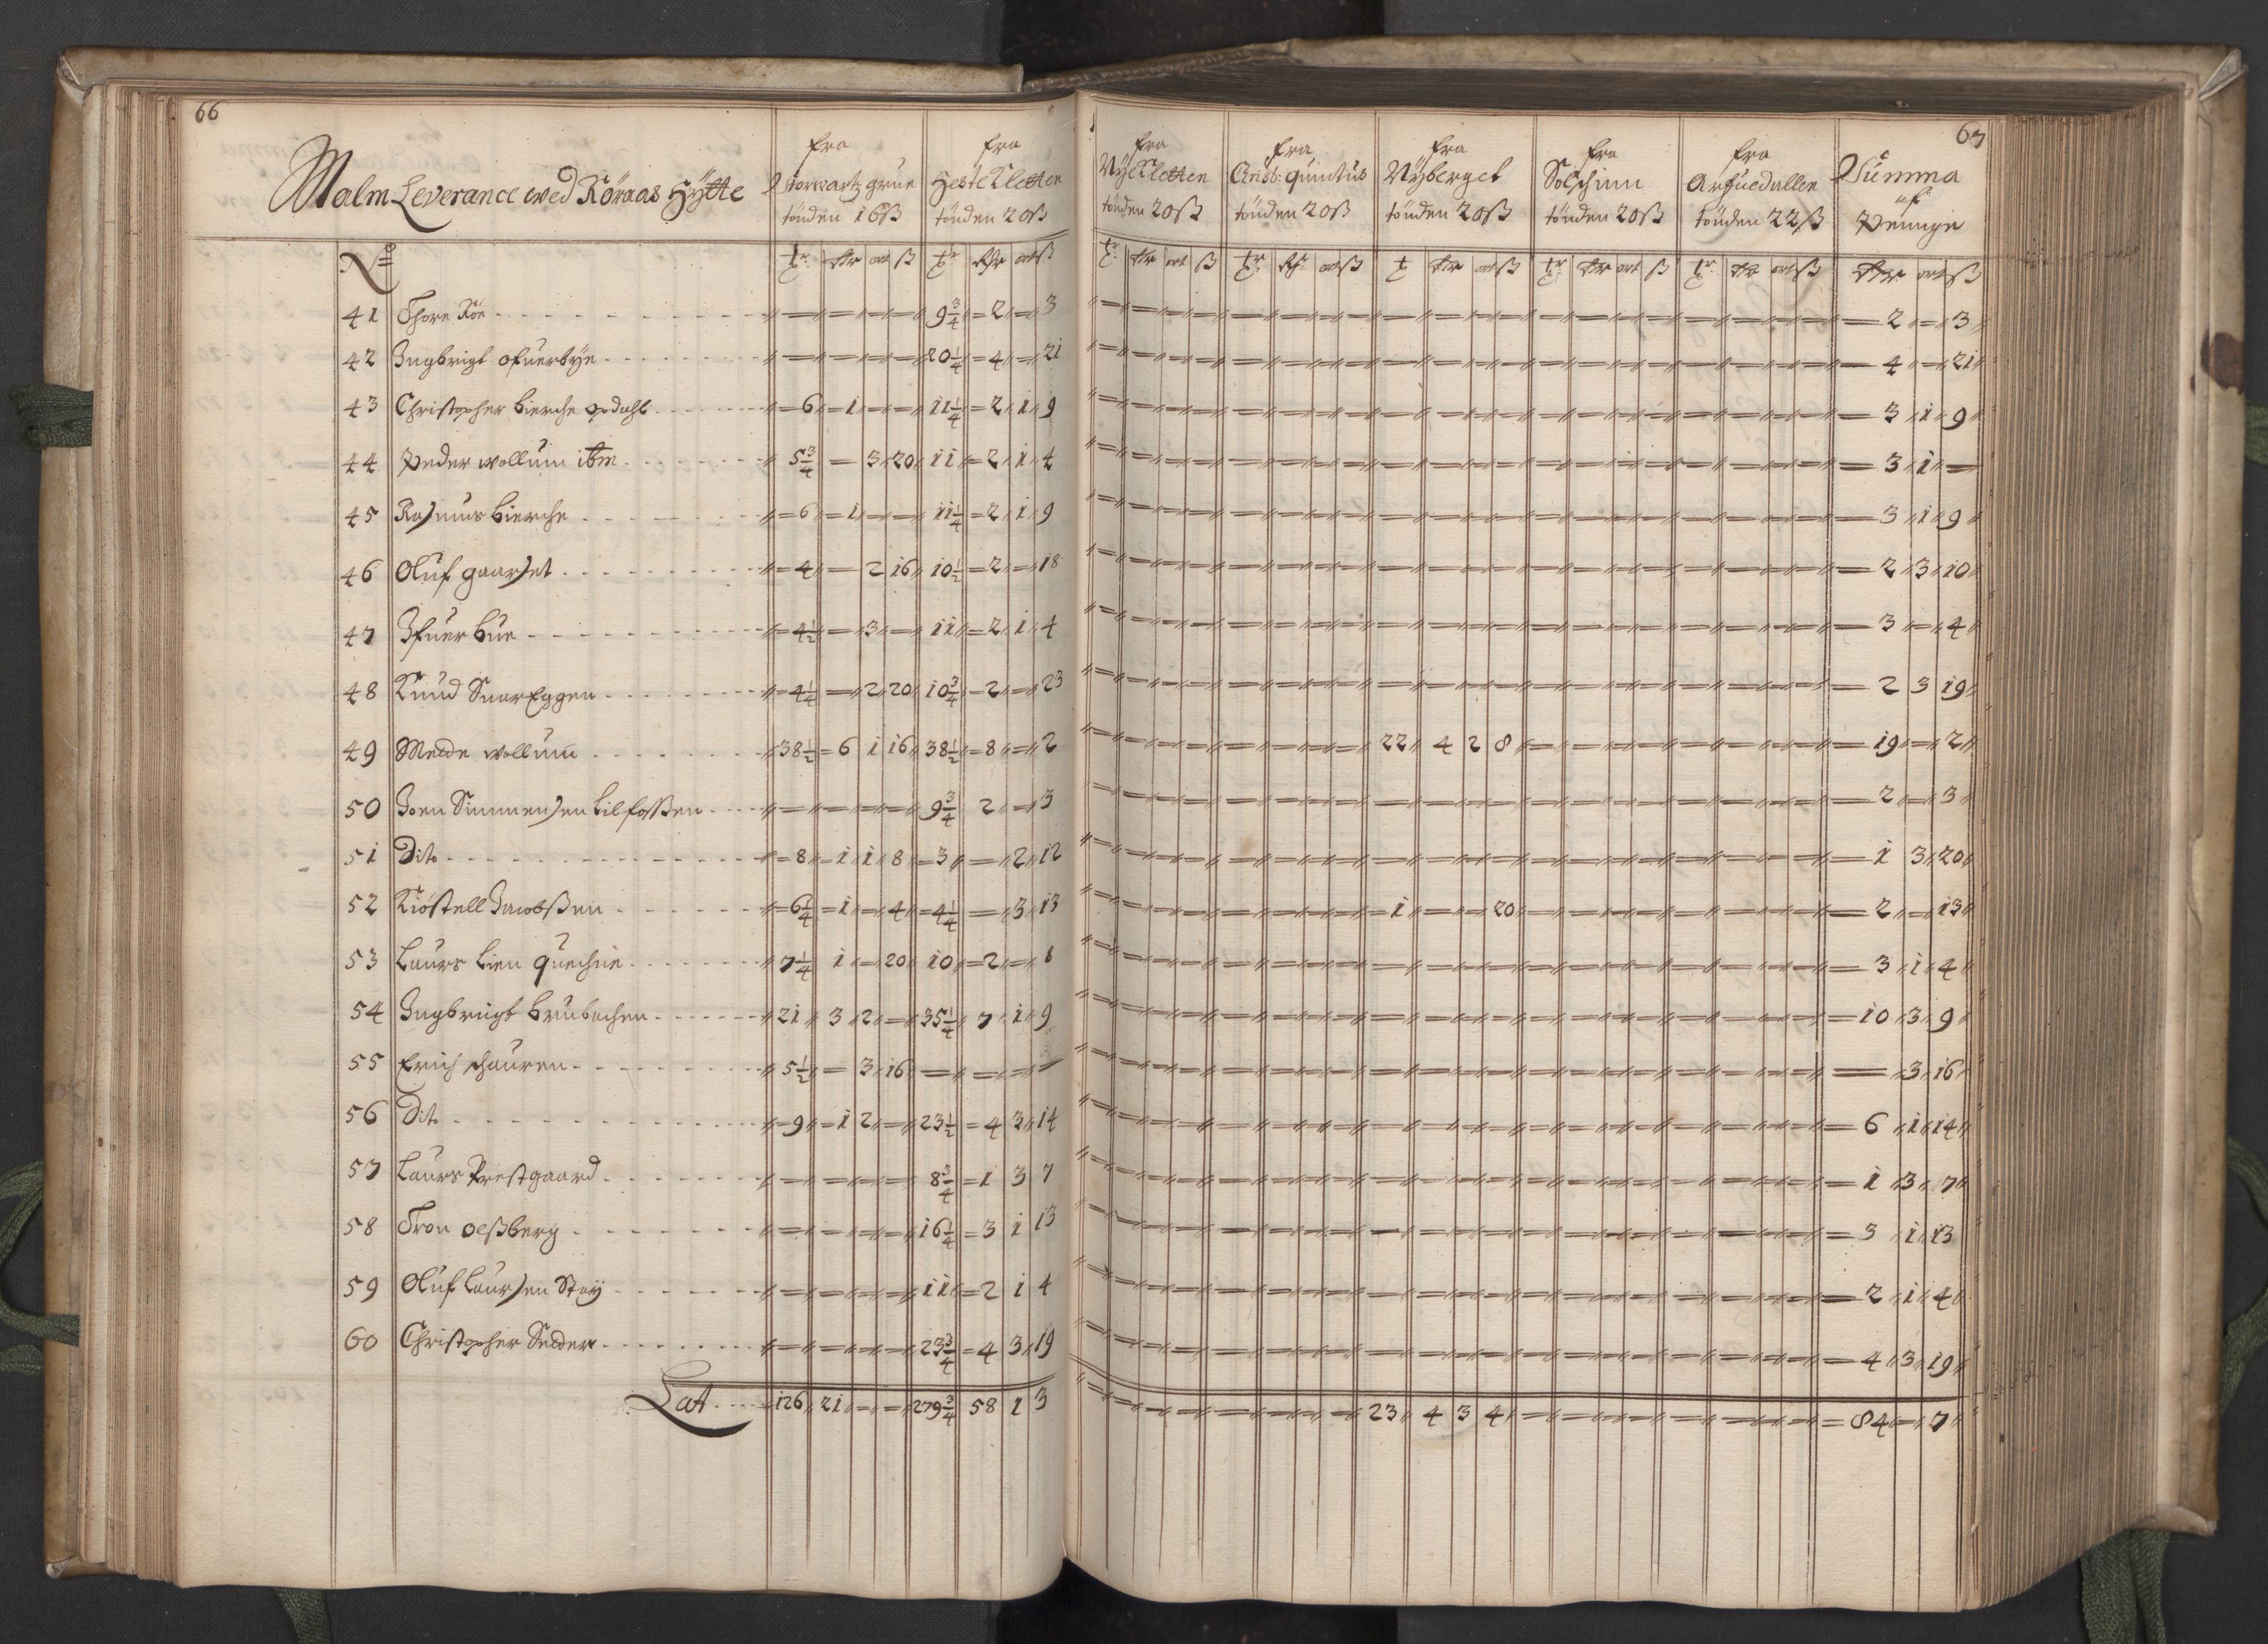 66
67
Malm Leverance wed Röraas Hÿtte
fra Storwartz grue tönden 16 ß
fra Hestekletten tönden 20 ß
fra Nÿekletten tönden 20 ß
fra Christ: quintus tönden 20 ß
fra Nÿberget tönden 20 ß
fra Solschinn tönden 20 ß
fra Arfuedallen tönden 22 ß
Summa af Pennge
No
tr Rdr ort ß tr Rdr ort ß tr Rdr ort ß tr Rdr ort ß t Rdr ort ß tr Rdr ort ß tr Rdr ort ß Rdr ort ß
41 Thore Röe 9 3/4 2 3 2 3
42 Ingbrigt ofuerbÿe 20 1/4 4 21 4 21
43 Christopher bierche opdahl 6 1 11 1/4 2 1 9 3 1 9
44 Peder wollum itm 5 3/4 3 20 11 2 1 4 3 1
45 Rasmus bierche 6 1 11 1/4 2 1 9 3 1 9
46 Oluf gaarset 4 2 16 10 1/2 2 18 2 3 10
47 Ifuer bue 4 1/2 3 11 2 1 4 3 4
48 Knud SnarEggen 4 1/4 2 20 10 3/4 2 23 2 3 19
49 Melde wollum 38 1/2 6 1 16 38 1/2 8 2 22 4 2 8 19 2
50 Joen Simmensen lilfossen 9 3/4 2 3 2 3
51 Dito 8 1 1 8 3 2 12 1 3 20
52 Kiöstell Jacobßen 6 1/4 1 4 4 1/4 3 13 1 20 2 13
53 Laurs lien quechne 7 1/4 1 20 10 2 8 3 1 4
54 Ingbrigt brubachen 21 3 2 35 1/4 7 1 9 10 3 9
55 Erich hauren 5 1/2 3 16 3 16
56 Dito 9 1 2 23 1/2 4 3 14 6 1 14
57 Laurs Prestgaard 8 3/4 1 3 7 1 3 7
58 Tron olßberg 16 1/4 3 1 13 3 1 13
59 Oluf Laursen Stöÿ 11 2 1 4 2 1 4
60 Christopher Selder 23 3/4 4 3 19 4 3 19
Lat 126 21 279 3/4 58 1 3 23 4 3 4 84 7